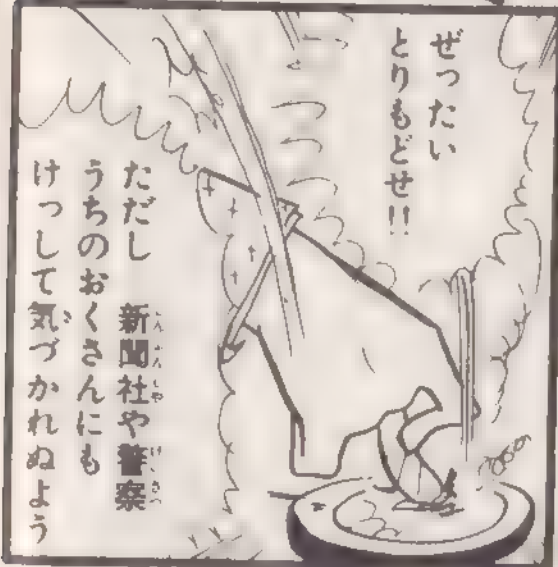 ぜったい
とりもどせ!!
ただし 新聞社や警察
うちのおくさんにも
けっして気づかれぬよう